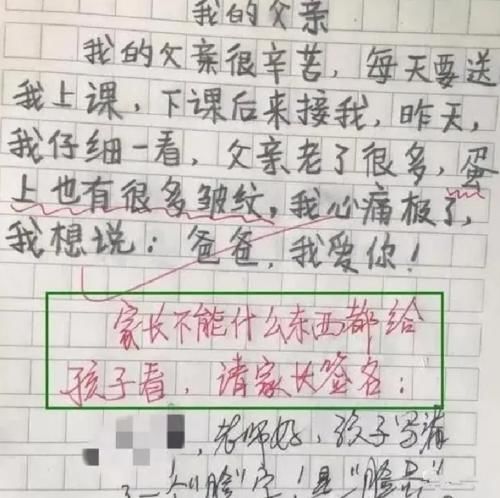 我的父亲
我的父亲很辛苦,每天要送
我上课,下课后来接我,昨天,
我仔细一看,父亲老了很多,蛋
上也有很多皱纹,我心痛极了,
我想说:爸爸,我爱你!
家长不能什么东西都给
孩子看,请家长签名:
,老师好,孩子写满
一个"脸"字!是"脸蛋"